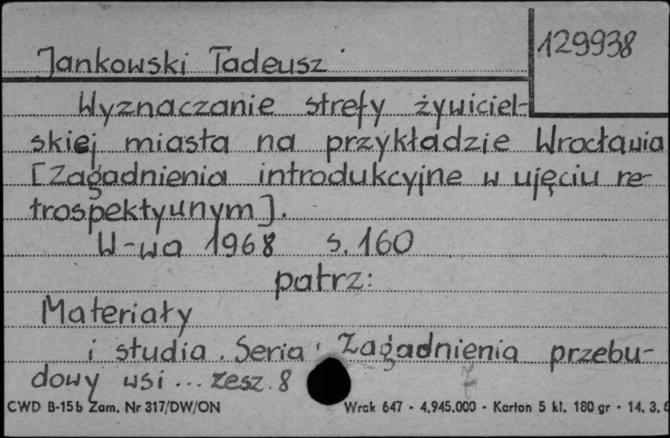 129938
Jankowski Tadeusz
Wyznaczanie strefy żywiciel-
skiej miasta na przykładzie Wrocławia
[Zagadnienia introdukcyjne w ujęciu re-
trospektywnym].
W-wa 1968 s. 160
patrz:
Materiały
i studia. Seria: Zagadnienia przebu-
dowy wsi... zesz. 8
CWD B-15b Zam. Nr 317/DW/ON Wrak 647 - 4.945.000 - Karton 5 kl. 180 gr - 14. 3.